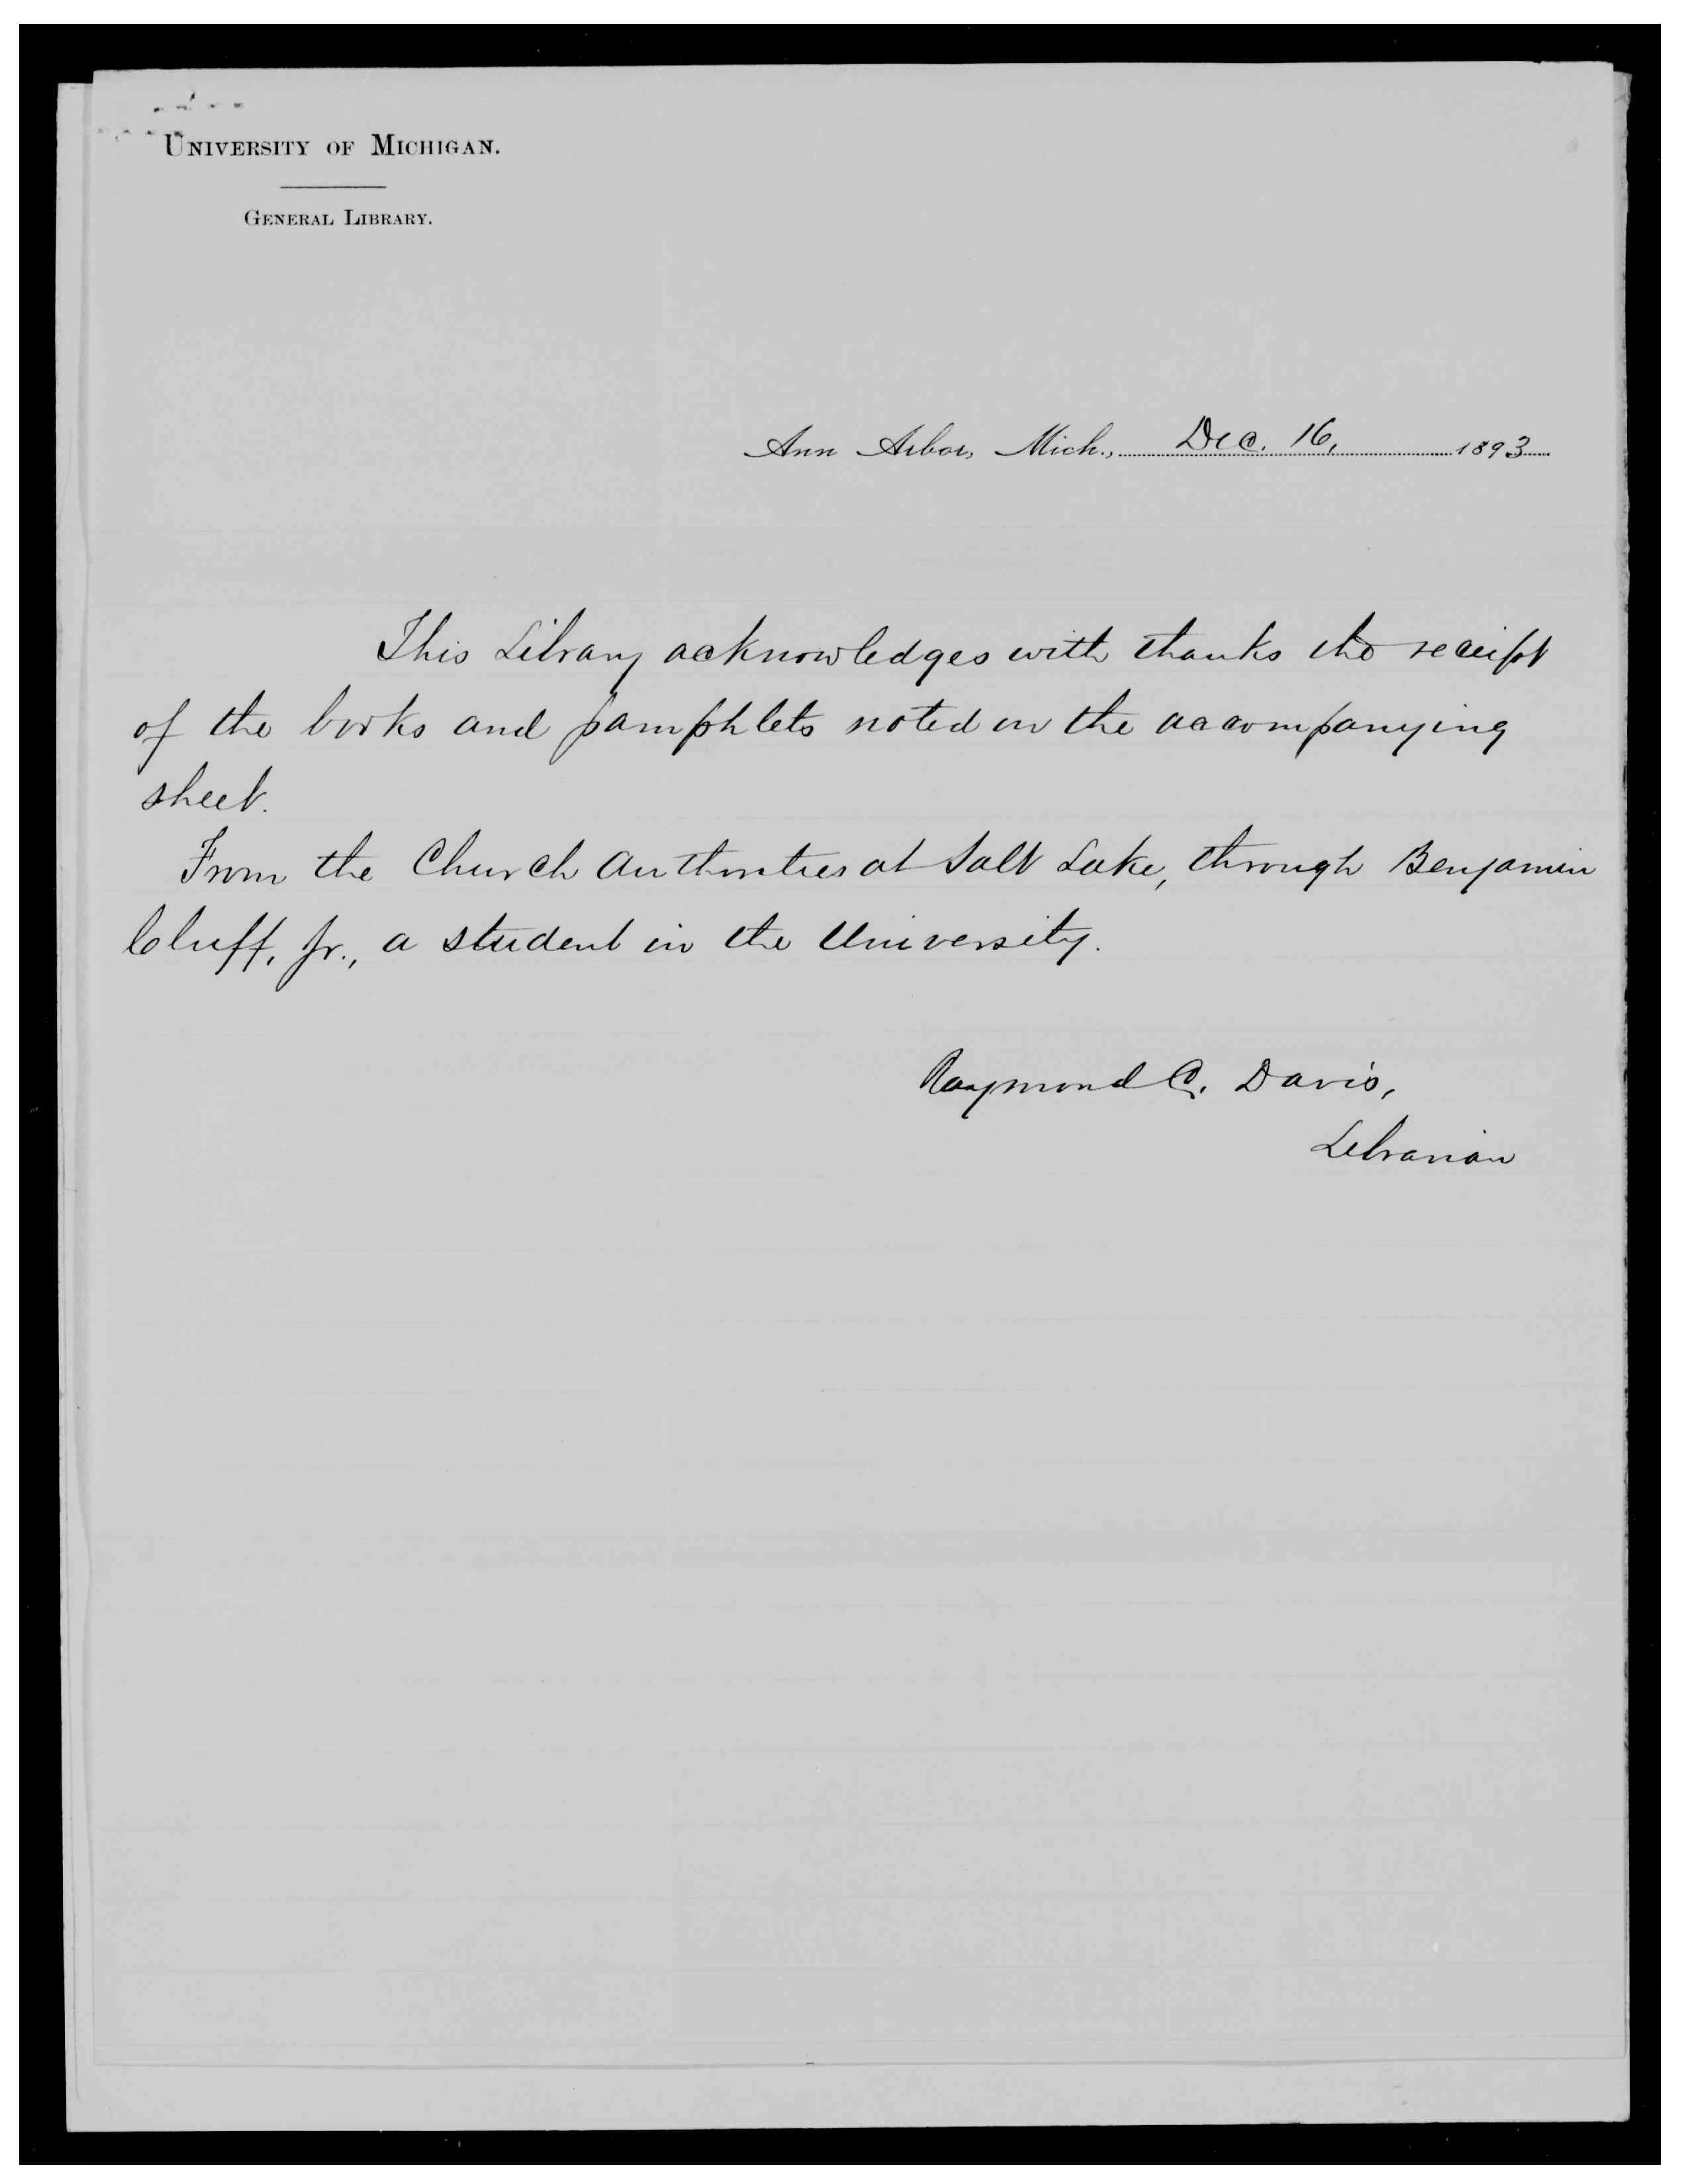 University of Michigan.
General Library.
Ann Arbor, Mich., Dec. 16, 1893
This Library acknowledges with thanks the receipt
of the books and pamphlets noted on the accompanying
sheet.
From the Church Authorities at Salt Lake, through Benjamin
Cluff, Jr., a student in the University.
Raymond C. Davis,
Librarian